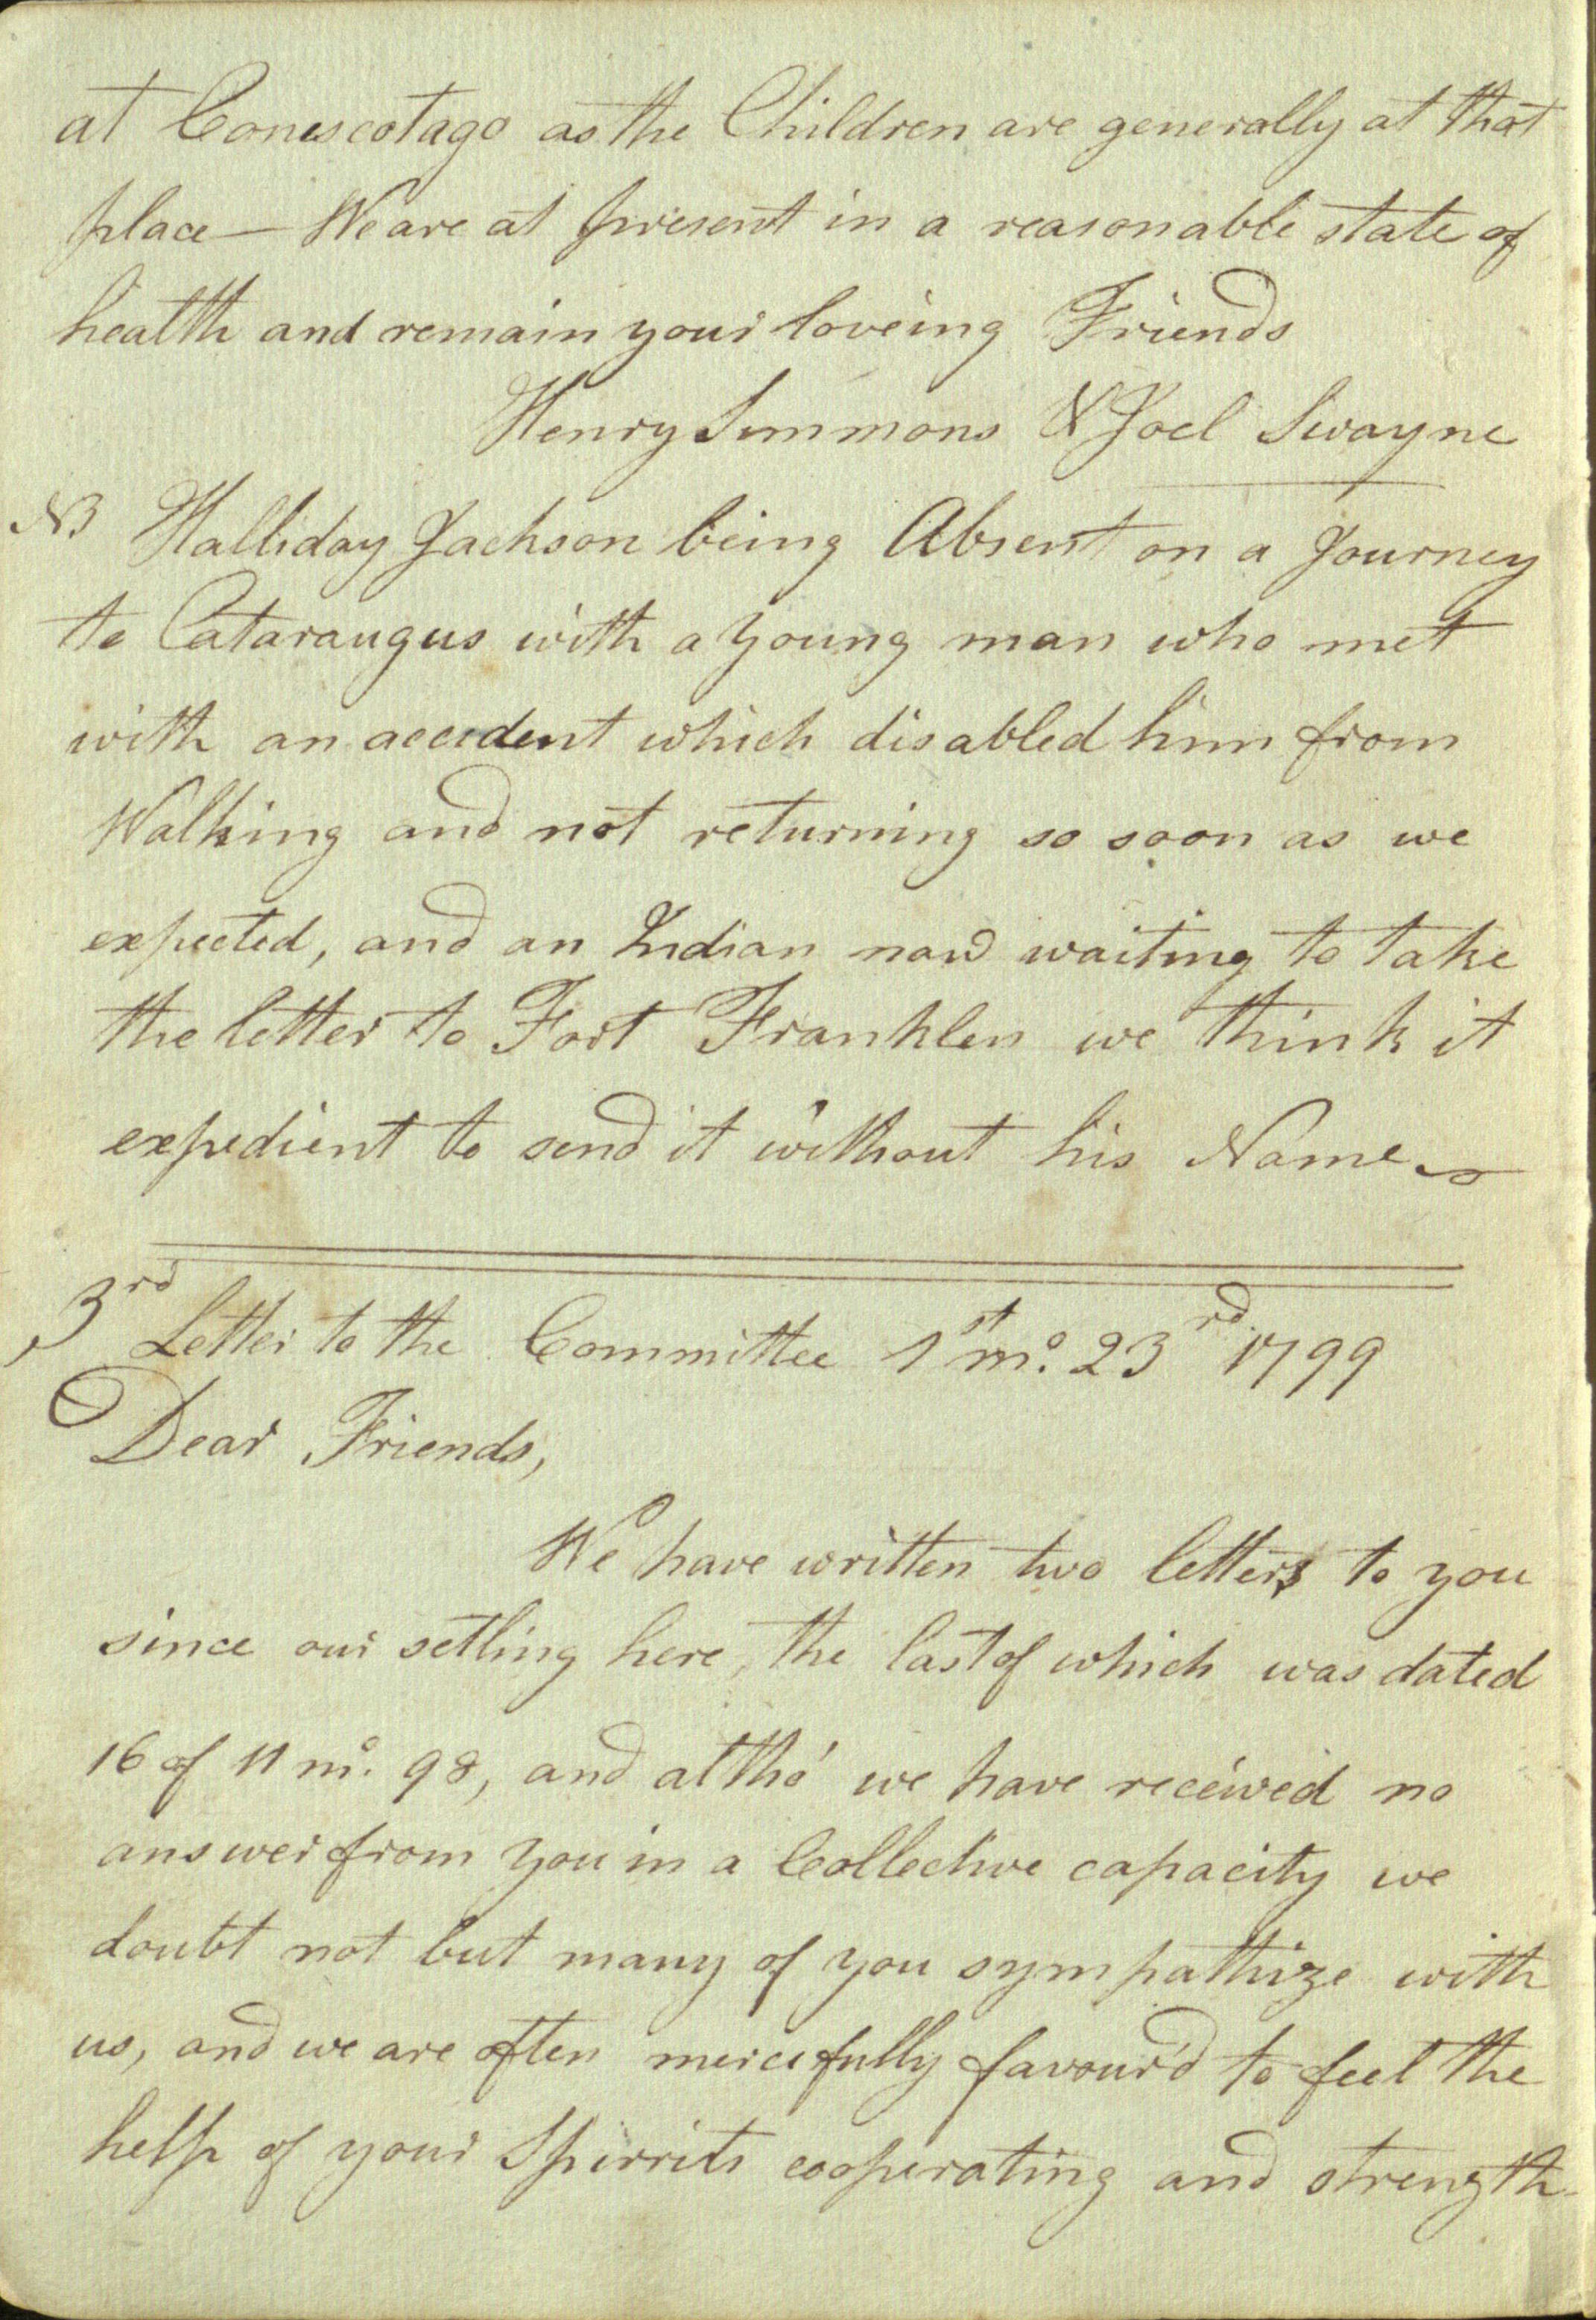 at Conescotago as the Children are generally at that
place — We are at present in a reasonable state of
health and remain your loveing Friends
Henry Simmons & Joel Swayne
NB Halliday Jackson being Absent on a Journey
to Cataraugus with a young man who met
with an accident which disabled him from
Walking and not returning so soon as we
expected, and an Indian now waiting to take
the letter to Fort Franklen we think it
expedient to send it without his Name
3rd Letter to the Committee 1st mo. 23rd 1799
Dear Friends,
We have written two letters to you
since our setling here, the last of which was dated
16 of 11 mo. 98, and altho' we have received no
answer from you in a Collective capacity we
doubt not but many of you sympathize with
us, and we are often mercifully favour'd to feel the
help of your Spirrits cooperating and strength-